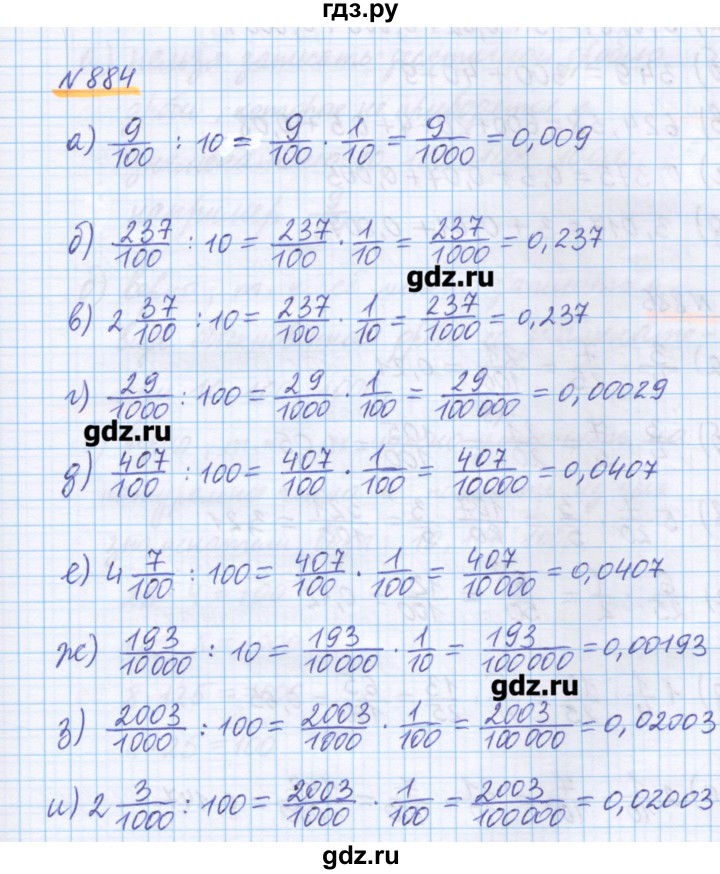 гдз.ру
N 884
а) 9/100 : 10 = 9/100 · 1/10 = 9/1000 = 0,009
б) 237/100 : 10 = 237/100 · 1/10 = 237/1000 = 0,237
gdz.ru
в) 2 37/100 : 10 = 237/100 · 1/10 = 237/1000 = 0,237
г) 29/1000 : 100 = 29/1000 · 1/100 = 29/100 000 = 0,00029
gdz.ru
д) 407/100 : 100 = 407/100 · 1/100 = 407/10000 = 0,0407
е) 4 7/100 : 100 = 407/100 · 1/100 = 407/10000 = 0,0407
ж) 193/10000 : 10 = 193/10000 · 1/10 = 193/100 000 = 0,00193
gdz.ru
з) 2003/1000 : 100 = 2003/1000 · 1/100 = 2003/100 000 = 0,02003
и) 2 3/1000 : 100 = 2003/1000 · 1/100 = 2003/100 000 = 0,02003
gdz.ru